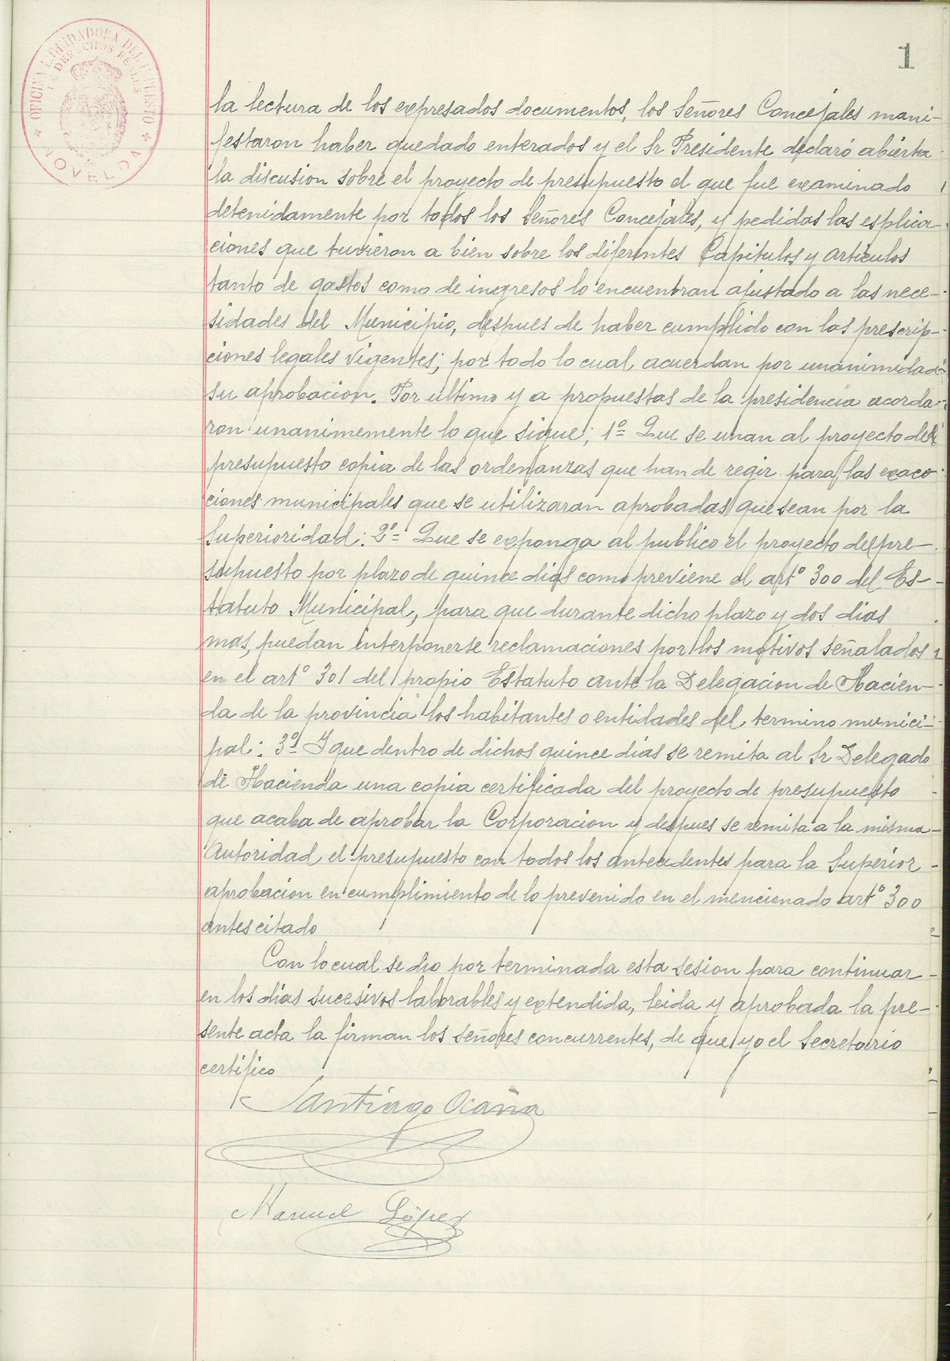 OFICINA LIQUIDADORA DEL IMPUESTO
DE DERECHOS REALES
NOVELDA
1
la lectura de los expresados documentos, los Señores Concejales mani-
festaron haber quedado enterados y el Sr Presidente declaró abierta
la discusion sobre el proyecto de presupuesto el que fue examinado
detenidamente por todos los Señores Concejales, y pedidas las explica-
ciones que tuvieron a bien sobre los diferentes Capitulos y articulos
tanto de gastos como de ingresos lo encuentran ajustado a las nece-
sidades del Municipio, despues de haber cumplido con las prescrip-
ciones legales vigentes; por todo lo cual acuerdan por unanimidad
su aprobacion. Por ultimo y a propuestas de la presidencia acorda-
ron unanimemente lo que sigue; 1º Que se unan al proyecto del
presupuesto copia de las ordenanzas que han de regir para las exacc-
ciones municipales que se utilizaran aprobadas que sean por la
Superioridad: 2º Que se exponga al publico el proyecto del pre-
supuesto por plazo de quince dias como previene el artº 300 del Es-
tatuto Municipal, para que durante dicho plazo y dos dias
mas, puedan interponerse reclamaciones por los motivos señalados
en el artº 301 del propio Estatuto ante la Delegacion de Hacien-
da de la provincia los habitantes o entidades del termino munici-
pal: 3º Y que dentro de dichos quince dias se remita al Sr Delegado
de Hacienda una copia certificada del proyecto de presupuesto
que acaba de aprobar la Corporacion y despues se remita a la misma
Autoridad el presupuesto con todos los antecedentes para la Superior
aprobacion en cumplimiento de lo prevenido en el mencionado artº 300
antes citado
Con lo cual se dio por terminada esta sesion para continuar
en los dias sucesivos laborables y extendida, leida y aprobada la pre-
sente acta la firman los señores concurrentes, de que yo el Secretario
certifico
Santiago Ocaña
Manuel López